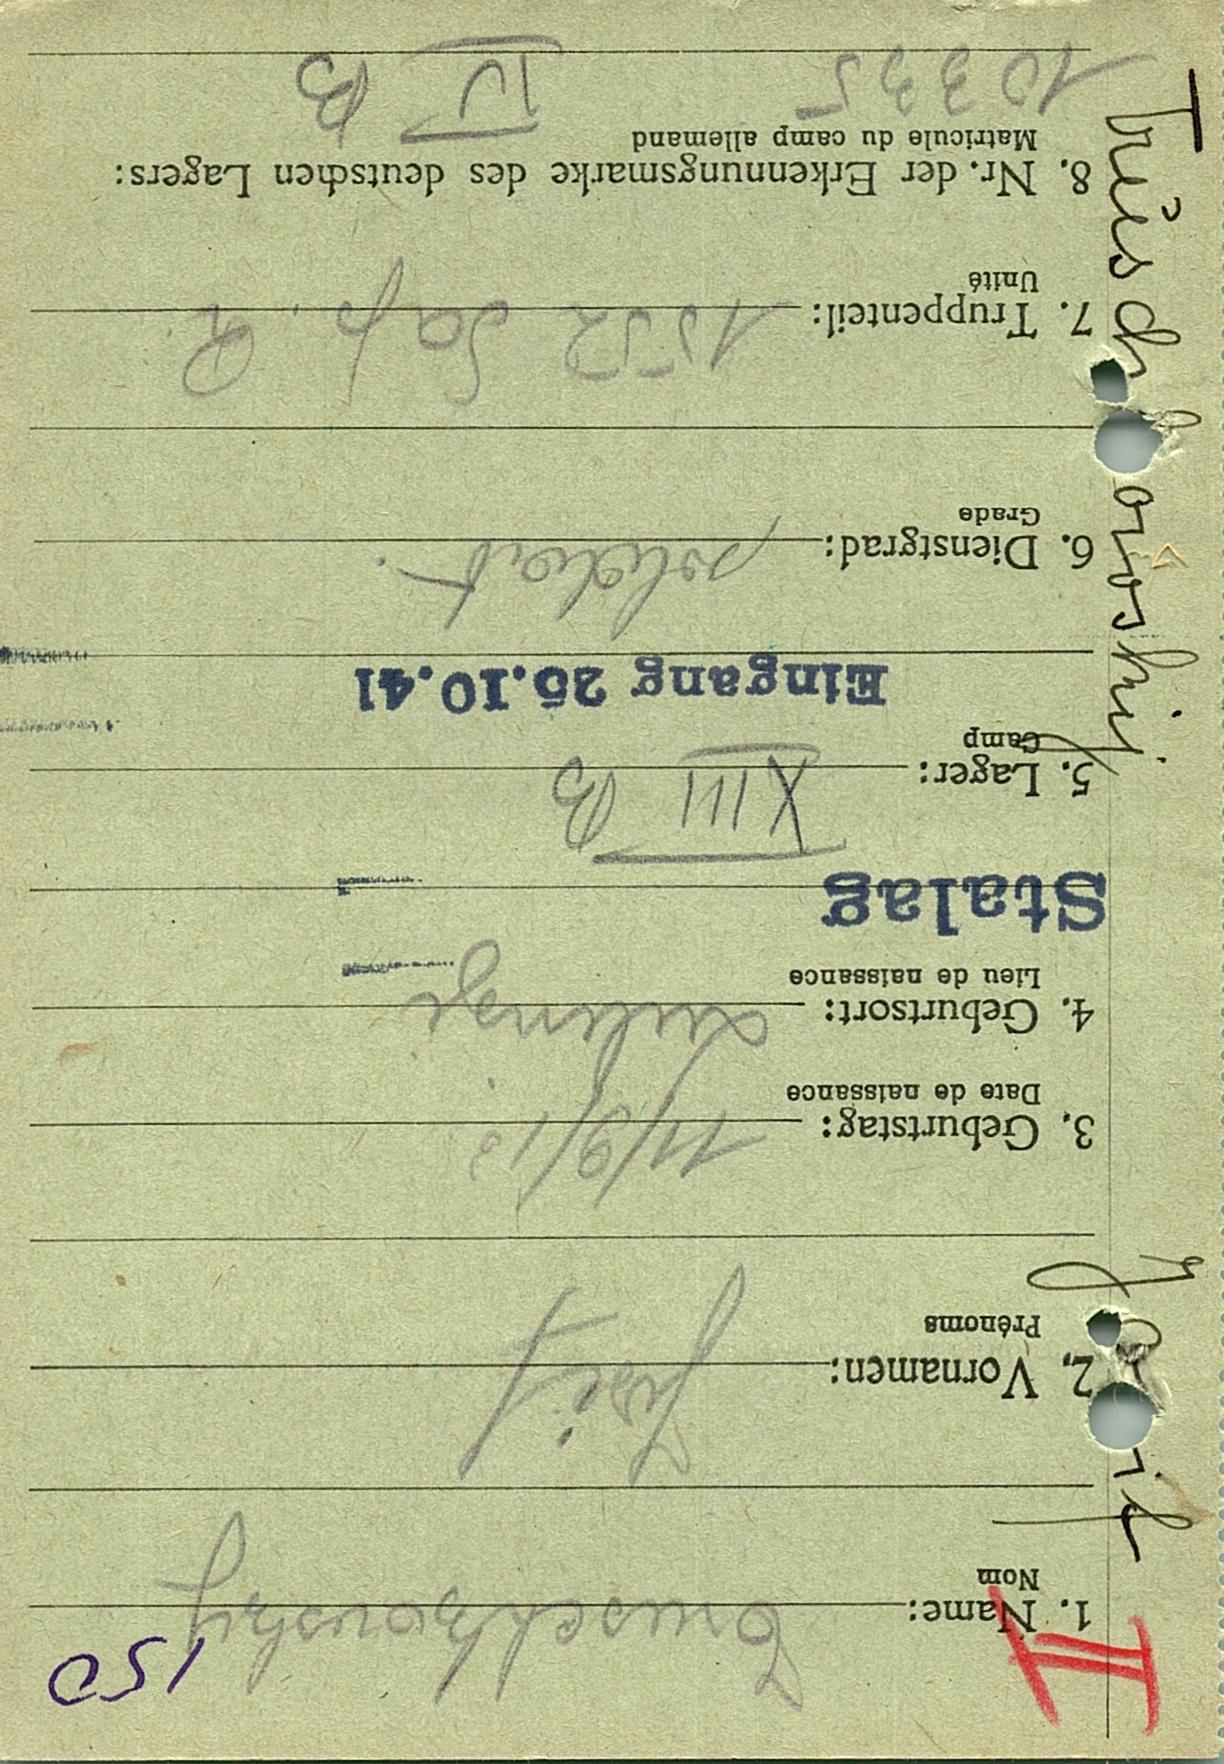 150
II
1. Name:
Nom
2. Vornamen: Josif
Prénoms
3. Geburtstag: 11/9/13
Date de naissance
4. Geburtsort:
Lieu de naissance
Stalag
5. Lager: XIII B
Camp
Eingang 25.10.41
6. Dienstgrad: soldat.
Grade
7. Truppenteil: 1552 Sap. R.
Unité
8. Nr. der Erkennungsmarke des deutschen Lagers:
Matricule du camp allemand
10335 IV B